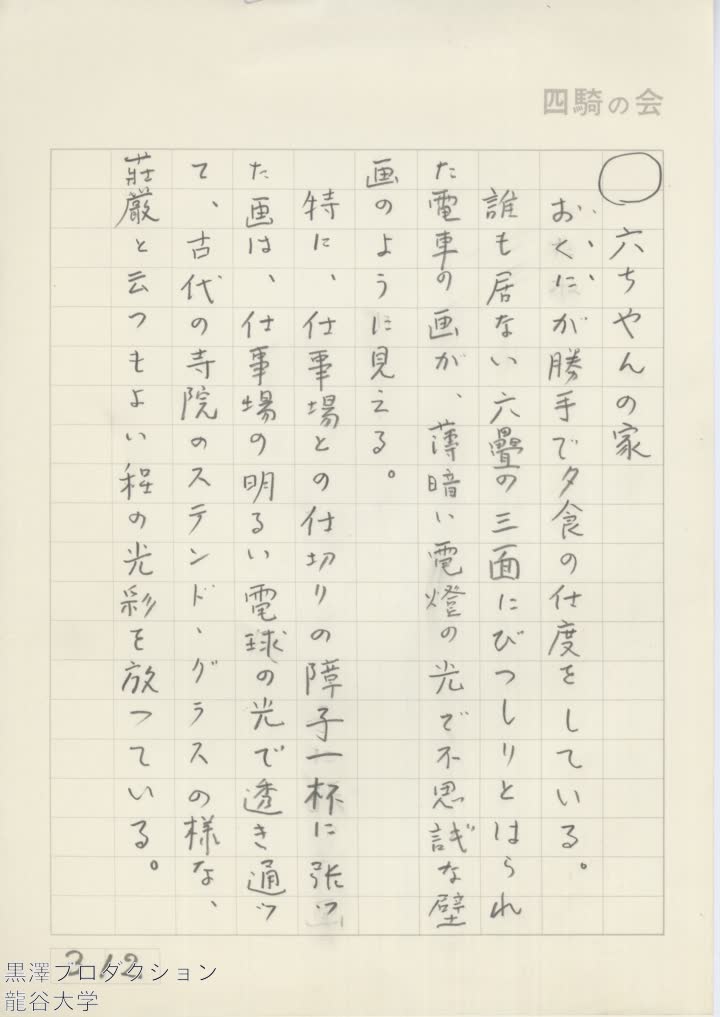 四騎の会
◯ 六ちやんの家
おくにが勝手で夕食の仕度をしている。
誰も居ない六疊の三面にびつしりとはられ
た電車の画が、薄暗い電燈の光で不思議な壁
画のように見える。
特に、仕事場との仕切りの障子一杯に張ッ
た画は、仕事場の明るい電球の光で透き通ッ
て、古代の寺院のステンド、グラスの様な、
莊厳と云つもよい程の光彩を放つている。
312
黒澤プロダクション
龍谷大学